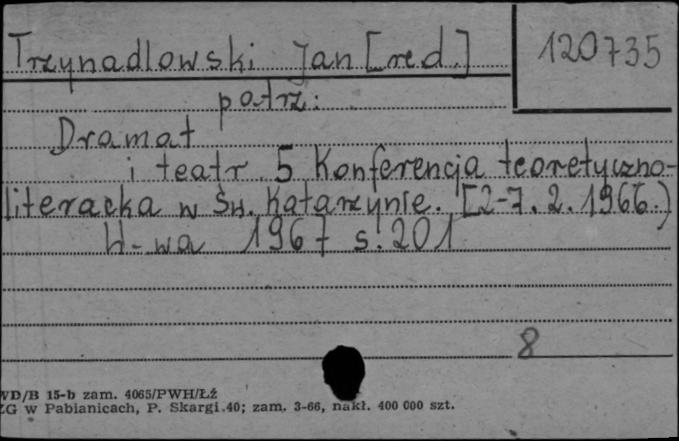 Trzynadlowski Jan [red.]
120735
patrz:
Dramat
i teatr 5 Konferencja teoretyczno-
literacka w Św. Katarzynie. [2-7.2.1966.)
W-wa 1967 s. 201
8
WD/B 15-b zam. 4065/PWH/Łź
ZG w Pabianicach, P. Skargi 40; zam. 3-66, nakł. 400 000 szt.